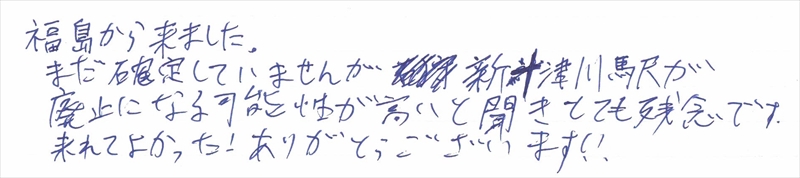 福島から来ました。
まだ確定していませんが 新十津川駅が
廃止になる可能性が高いと聞きとても残念です。
来れてよかった！ありがとうございます！！